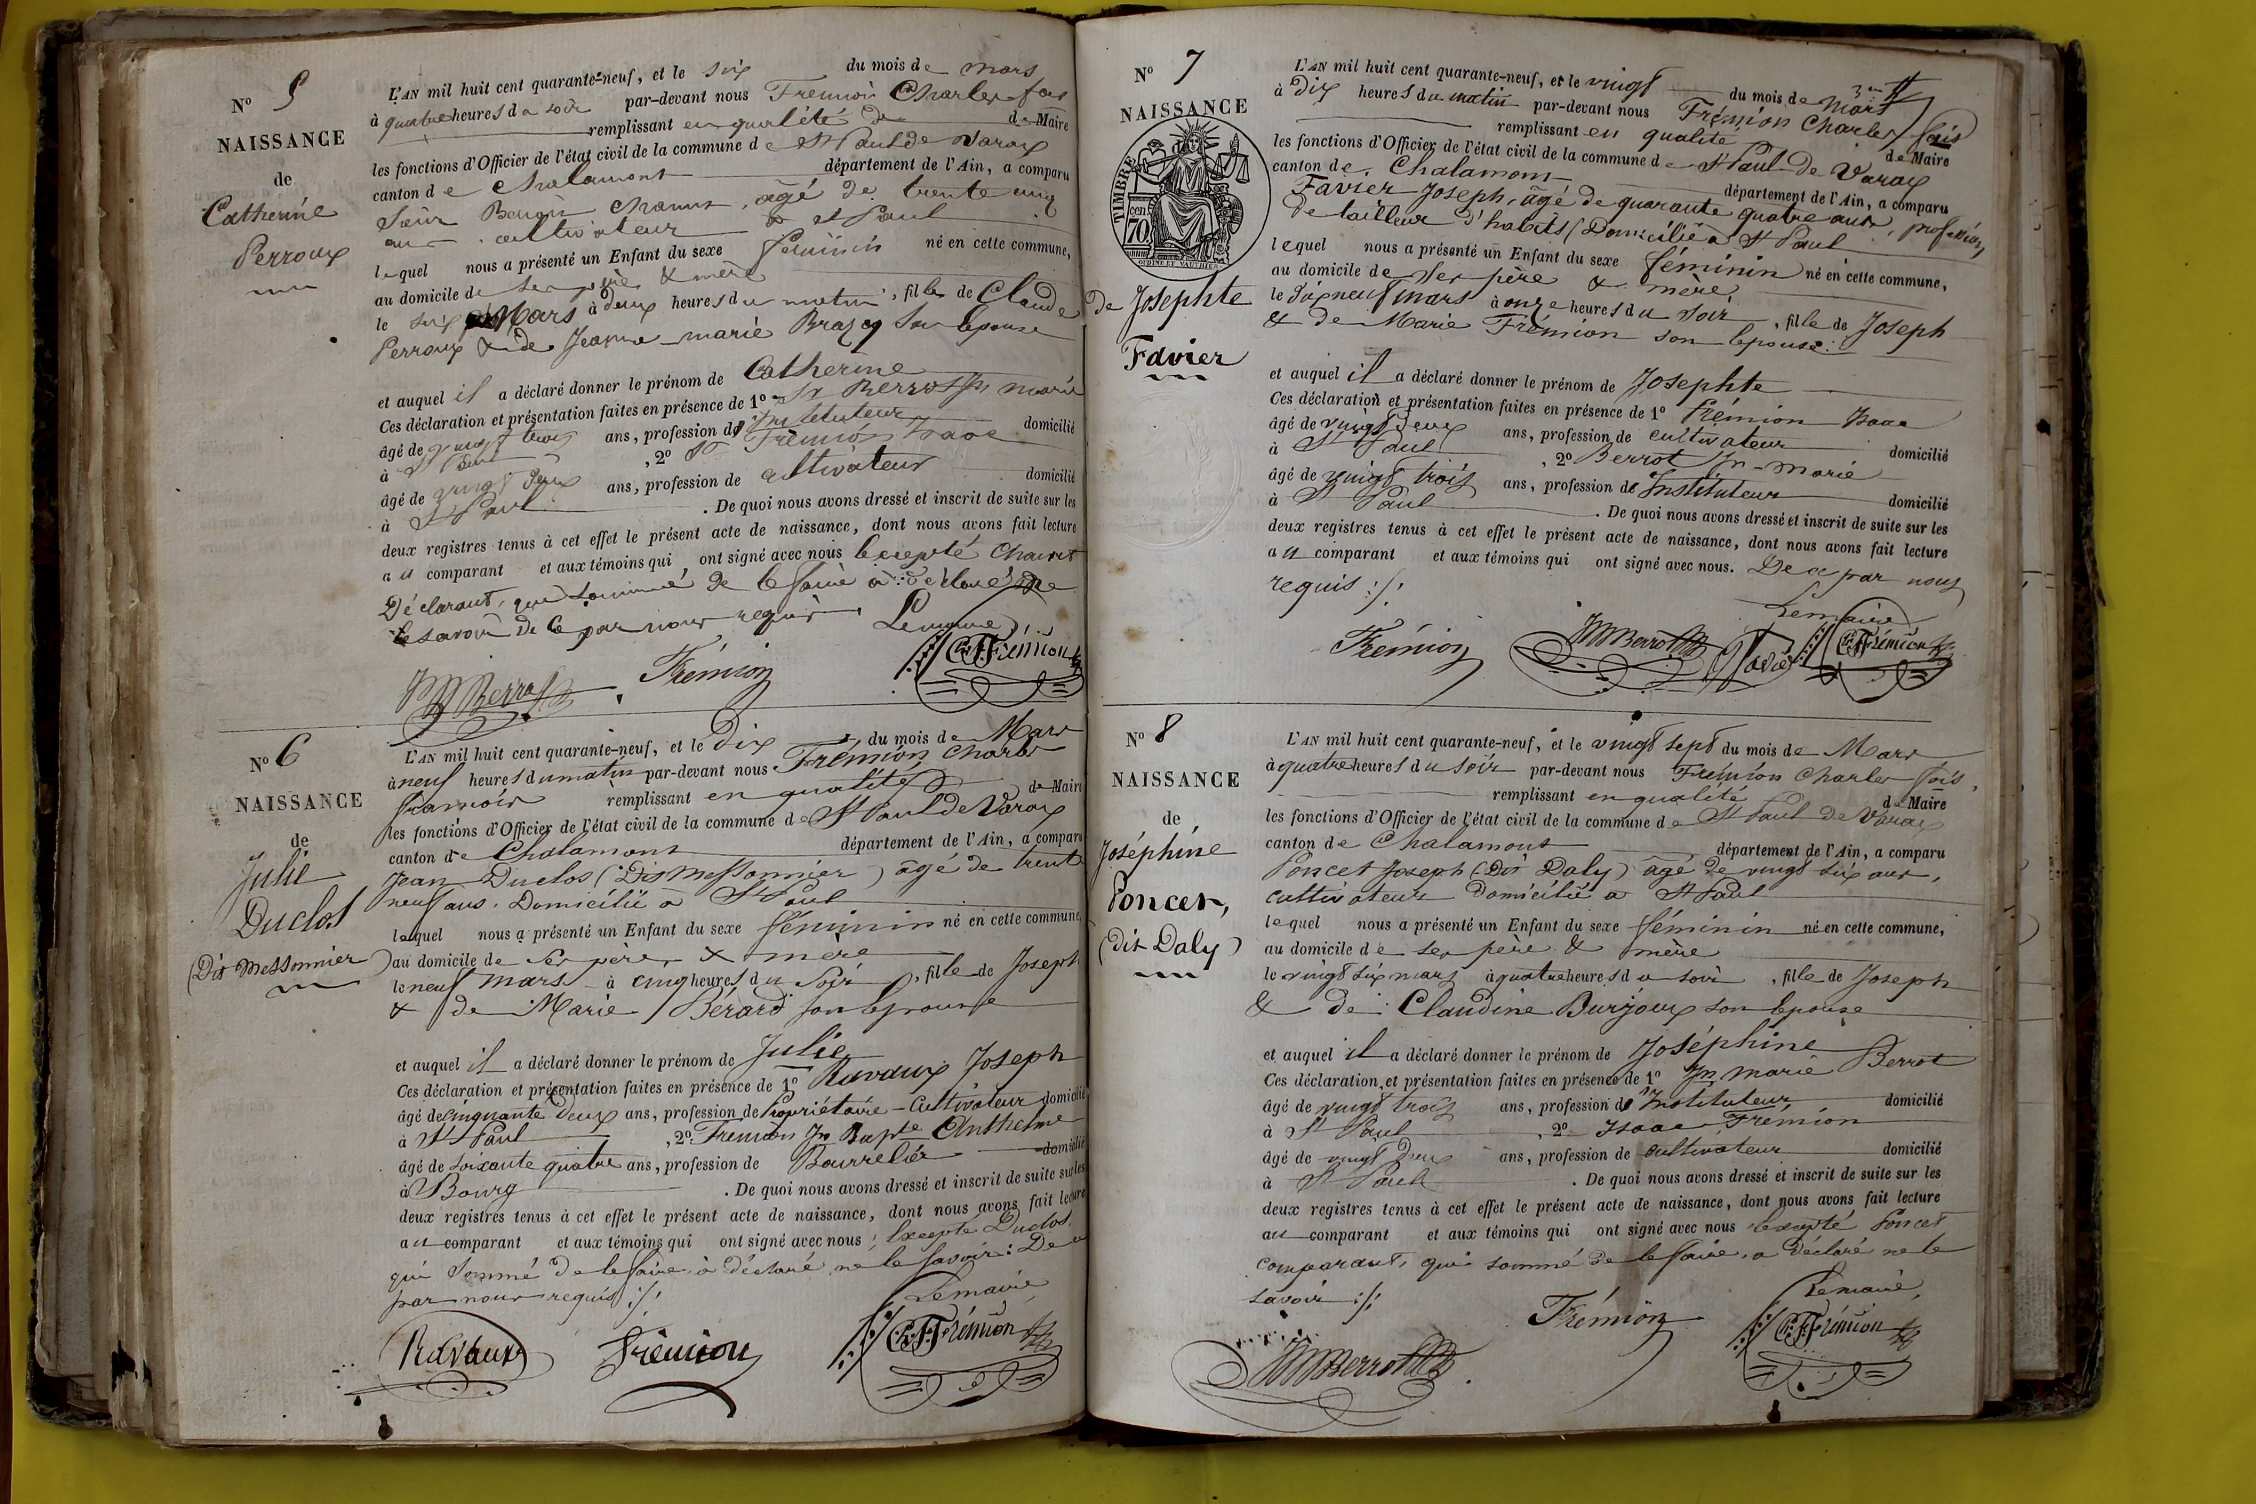 N° 5
NAISSANCE
de
Catherine
Perroux
L'AN mil huit cent quarante-neuf, et le six du mois de mars
à quatre heures du soir par-devant nous Fremion Charles fois
remplissant en qualité de de Maire
les fonctions d'Officier de l'état civil de la commune de St Paul de Varax
canton de Chalamont département de l'Ain, a comparu
Benoit Chanut, âgé de trente cinq
ans cultivateur à St Paul
lequel nous a présenté un Enfant du sexe féminin né en cette commune,
au domicile de ses père & mère
le six Mars à deux heures du matin, fille de Claude
Perroux & de Jeanne marie Brazy son épouse
et auquel il a déclaré donner le prénom de Catherine
Ces déclaration et présentation faites en présence de 1° Sr Berrot Jn marie
âgé de vingt trois ans, profession d'instituteur domicilié
à St Paul, 2° So Frémion Isaac
âgé de vingt deux ans, profession de cultivateur domicilié
à St Paul. De quoi nous avons dressé et inscrit de suite sur les
deux registres tenus à cet effet le présent acte de naissance, dont nous avons fait lecture
au comparant et aux témoins qui, ont signé avec nous excepté Chanut
Déclarant, qui sommé de le faire à déclaré ne
le savoir de ce par nous requis Lemaire
JM Berrot Frémion Ch. F. Frémion
N° 6
NAISSANCE
de
Julie
Duclos
(Dit Messonnier)
L'AN mil huit cent quarante-neuf, et le Dix du mois de Mars
à neuf heures du matin par-devant nous Frémion Charles
francois remplissant en qualité de Maire
les fonctions d'Officier de l'état civil de la commune de St Paul de Varax
canton de Chalamont département de l'Ain, a comparu
Jean Duclos (Dit Messonnier) âgé de trente
neuf ans. Domicilié à St Paul
lequel nous a présenté un Enfant du sexe féminin né en cette commune,
au domicile de ses père & mère
le neuf mars à cinq heures du Soir, fille de Joseph
& de Marie Bérard son épouse
et auquel il a déclaré donner le prénom de Julie
Ces déclaration et présentation faites en présence de 1° Ravaux Joseph
âgé de cinquante deux ans, profession de Propriétaire-Cultivateur domicilié
à St Paul, 2° Fremion Jn Bapte Anthelme
âgé de soixante quatre ans, profession de Bourrelier domicilié
à Bourg. De quoi nous avons dressé et inscrit de suite sur les
deux registres tenus à cet effet le présent acte de naissance, dont nous avons fait lecture
au comparant et aux témoins qui ont signé avec nous; Excepté Duclos
qui sommé de le faire à déclaré ne le savoir: De ce
par nous requis :/: Lemaire,
Ravaux Frémion Ch. F. Frémion
N° 7
NAISSANCE
TIMBRE
cen
70
de Josephte
Favier
L'AN mil huit cent quarante-neuf, et le vingt du mois de Mars
à dix heures du matin par-devant nous Frémion Charles fois
remplissant en qualité de Maire
les fonctions d'Officier de l'état civil de la commune de St Paul de Varax
canton de Chalamont département de l'Ain, a comparu
Favier Joseph, âgé de quarante quatre ans, profession,
de tailleur d'habits (Domicilié à St Paul
lequel nous a présenté un Enfant du sexe féminin né en cette commune,
au domicile de ses père & mère
le dix neuf mars à onze heures du soir, fille de Joseph
& de Marie Frémion son épouse
et auquel il a déclaré donner le prénom de Josephte
Ces déclaration et présentation faites en présence de 1° Frémion Isaac
âgé de vingt deux ans, profession de cultivateur domicilié
à St Paul, 2° Berrot Jn-marie
âgé de vingt trois ans, profession d'Instituteur domicilié
à St Paul. De quoi nous avons dressé et inscrit de suite sur les
deux registres tenus à cet effet le présent acte de naissance, dont nous avons fait lecture
au comparant et aux témoins qui ont signé avec nous. De ce par nous
requis :/: Lemaire
Frémion JM Berrot Favier Ch. F. Frémion
N° 8
NAISSANCE
de
Joséphine
Poncet,
(dit Daly)
L'AN mil huit cent quarante-neuf, et le vingt sept du mois de Mars
à quatre heures du soir par-devant nous Frémion Charles fois,
remplissant en qualité de Maire
les fonctions d'Officier de l'état civil de la commune de St Paul de Varax
canton de Chalamont département de l'Ain, a comparu
Poncet Joseph (Dit Daly) âgé de vingt six ans,
cultivateur domicilié à St Paul
lequel nous a présenté un Enfant du sexe féminin né en cette commune,
au domicile de ses père & mère
le vingt six mars à quatre heures du soir, fille de Joseph
& de Claudine Burjoux son épouse
et auquel il a déclaré donner le prénom de Joséphine
Ces déclaration et présentation faites en présence de 1° Jn marie Berrot
âgé de vingt trois ans, profession d'Instituteur domicilié
à St Paul, 2° Isaac Frémion
âgé de vingt deux ans, profession de cultivateur domicilié
à St Paul. De quoi nous avons dressé et inscrit de suite sur les
deux registres tenus à cet effet le présent acte de naissance, dont nous avons fait lecture
au comparant et aux témoins qui ont signé avec nous excepté Poncet
comparant, qui sommé de le faire, a déclaré ne le
savoir :/: Lemaire,
JM Berrot Frémion Ch. F. Frémion